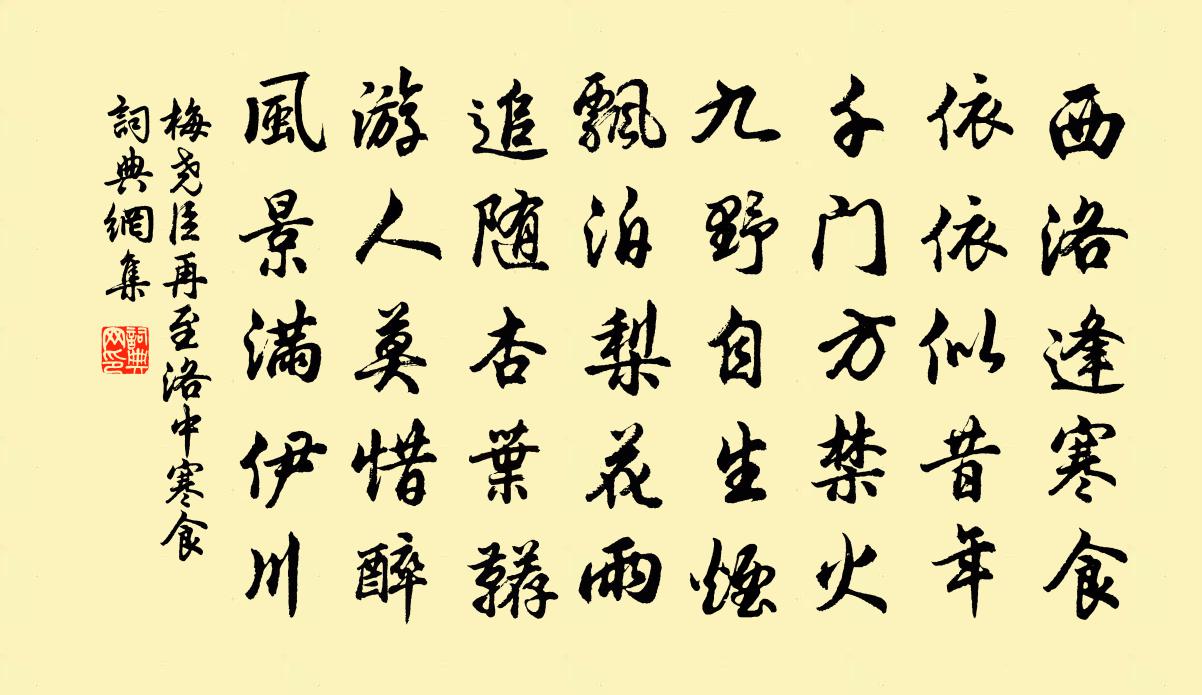 西洛逢寒食
依依似昔年
千门方禁火
九野自生煙
飄泊梨花雨
追随杏葉韉
游人莫惜醉
風景满伊川
梅尧臣再至洛中寒食
詞典網集
詞典
网印